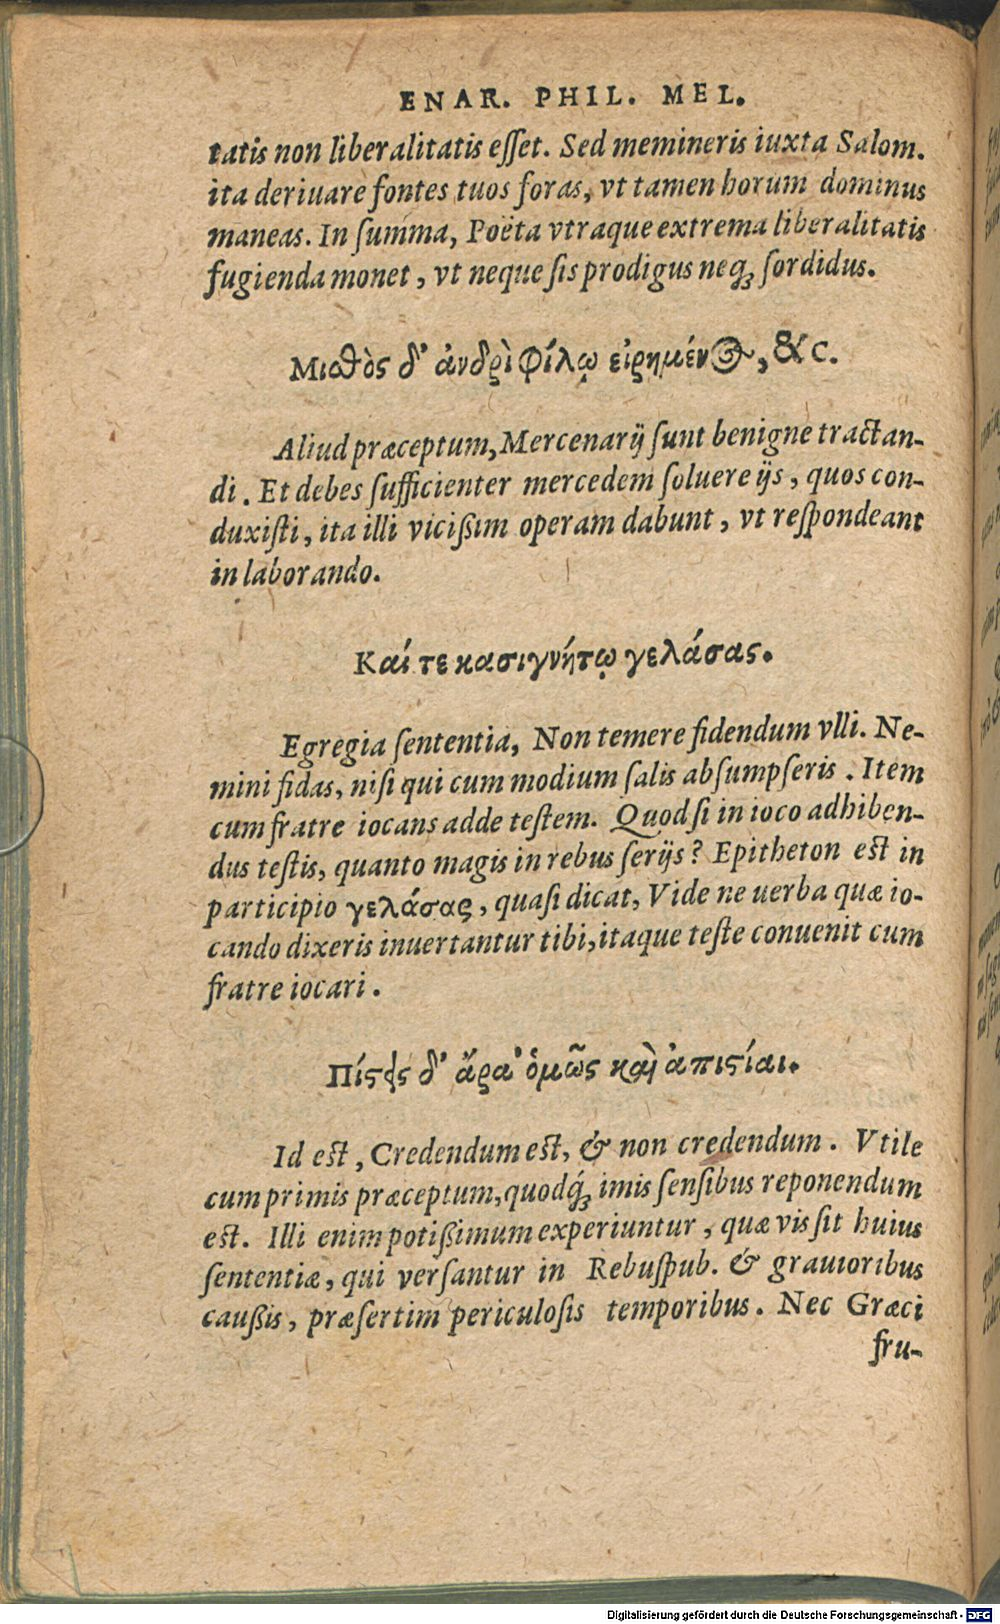 ENAR. PHIL. MEL.
tatis non liberalitatis eſſet. Sed memineris iuxta Salom.
ita deriuare fontes tuos foras, vt tamen horum dominus
maneas. In ſumma, Poëta vtraque extrema liberalitatis
fugienda monet, vt neque ſis prodigus neqꝫ ſordidus.
Μισθὸς δ' ἀνδρὶ φίλῳ εἰρημένος, &c.
Aliud præceptum, Mercenarij ſunt benigne tractan-
di. Et debes ſufficienter mercedem ſoluere ijs, quos con-
duxiſti, ita illi vicißim operam dabunt, vt reſpondeant
in laborando.
Καί τε κασιγνήτῳ γελάσας.
Egregia ſententia, Non temere fidendum vlli. Ne-
mini fidas, niſi qui cum modium ſalis abſumpſeris. Item
cum fratre iocans adde teſtem. Quod ſi in ioco adhiben-
dus teſtis, quanto magis in rebus ſerijs? Epitheton eſt in
participio γελάσας, quaſi dicat, Vide ne uerba quæ io-
cando dixeris inuertantur tibi, itaque teſte conuenit cum
fratre iocari.
Πίϛεις δ' ἄρα ὁμῶς καὶ ἀπιϛίαι.
Id eſt, Credendum eſt, & non credendum. Vtile
cum primis præceptum, quodqꝫ́ imis ſenſibus reponendum
eſt. Illi enim potißimum experiuntur, quæ vis ſit huius
ſententiæ, qui verſantur in Rebuſpub. & grauioribus
caußis, præſertim periculoſis temporibus. Nec Græci
fru-
Digitalisierung gefördert durch die Deutsche Forschungsgemeinschaft - DFG